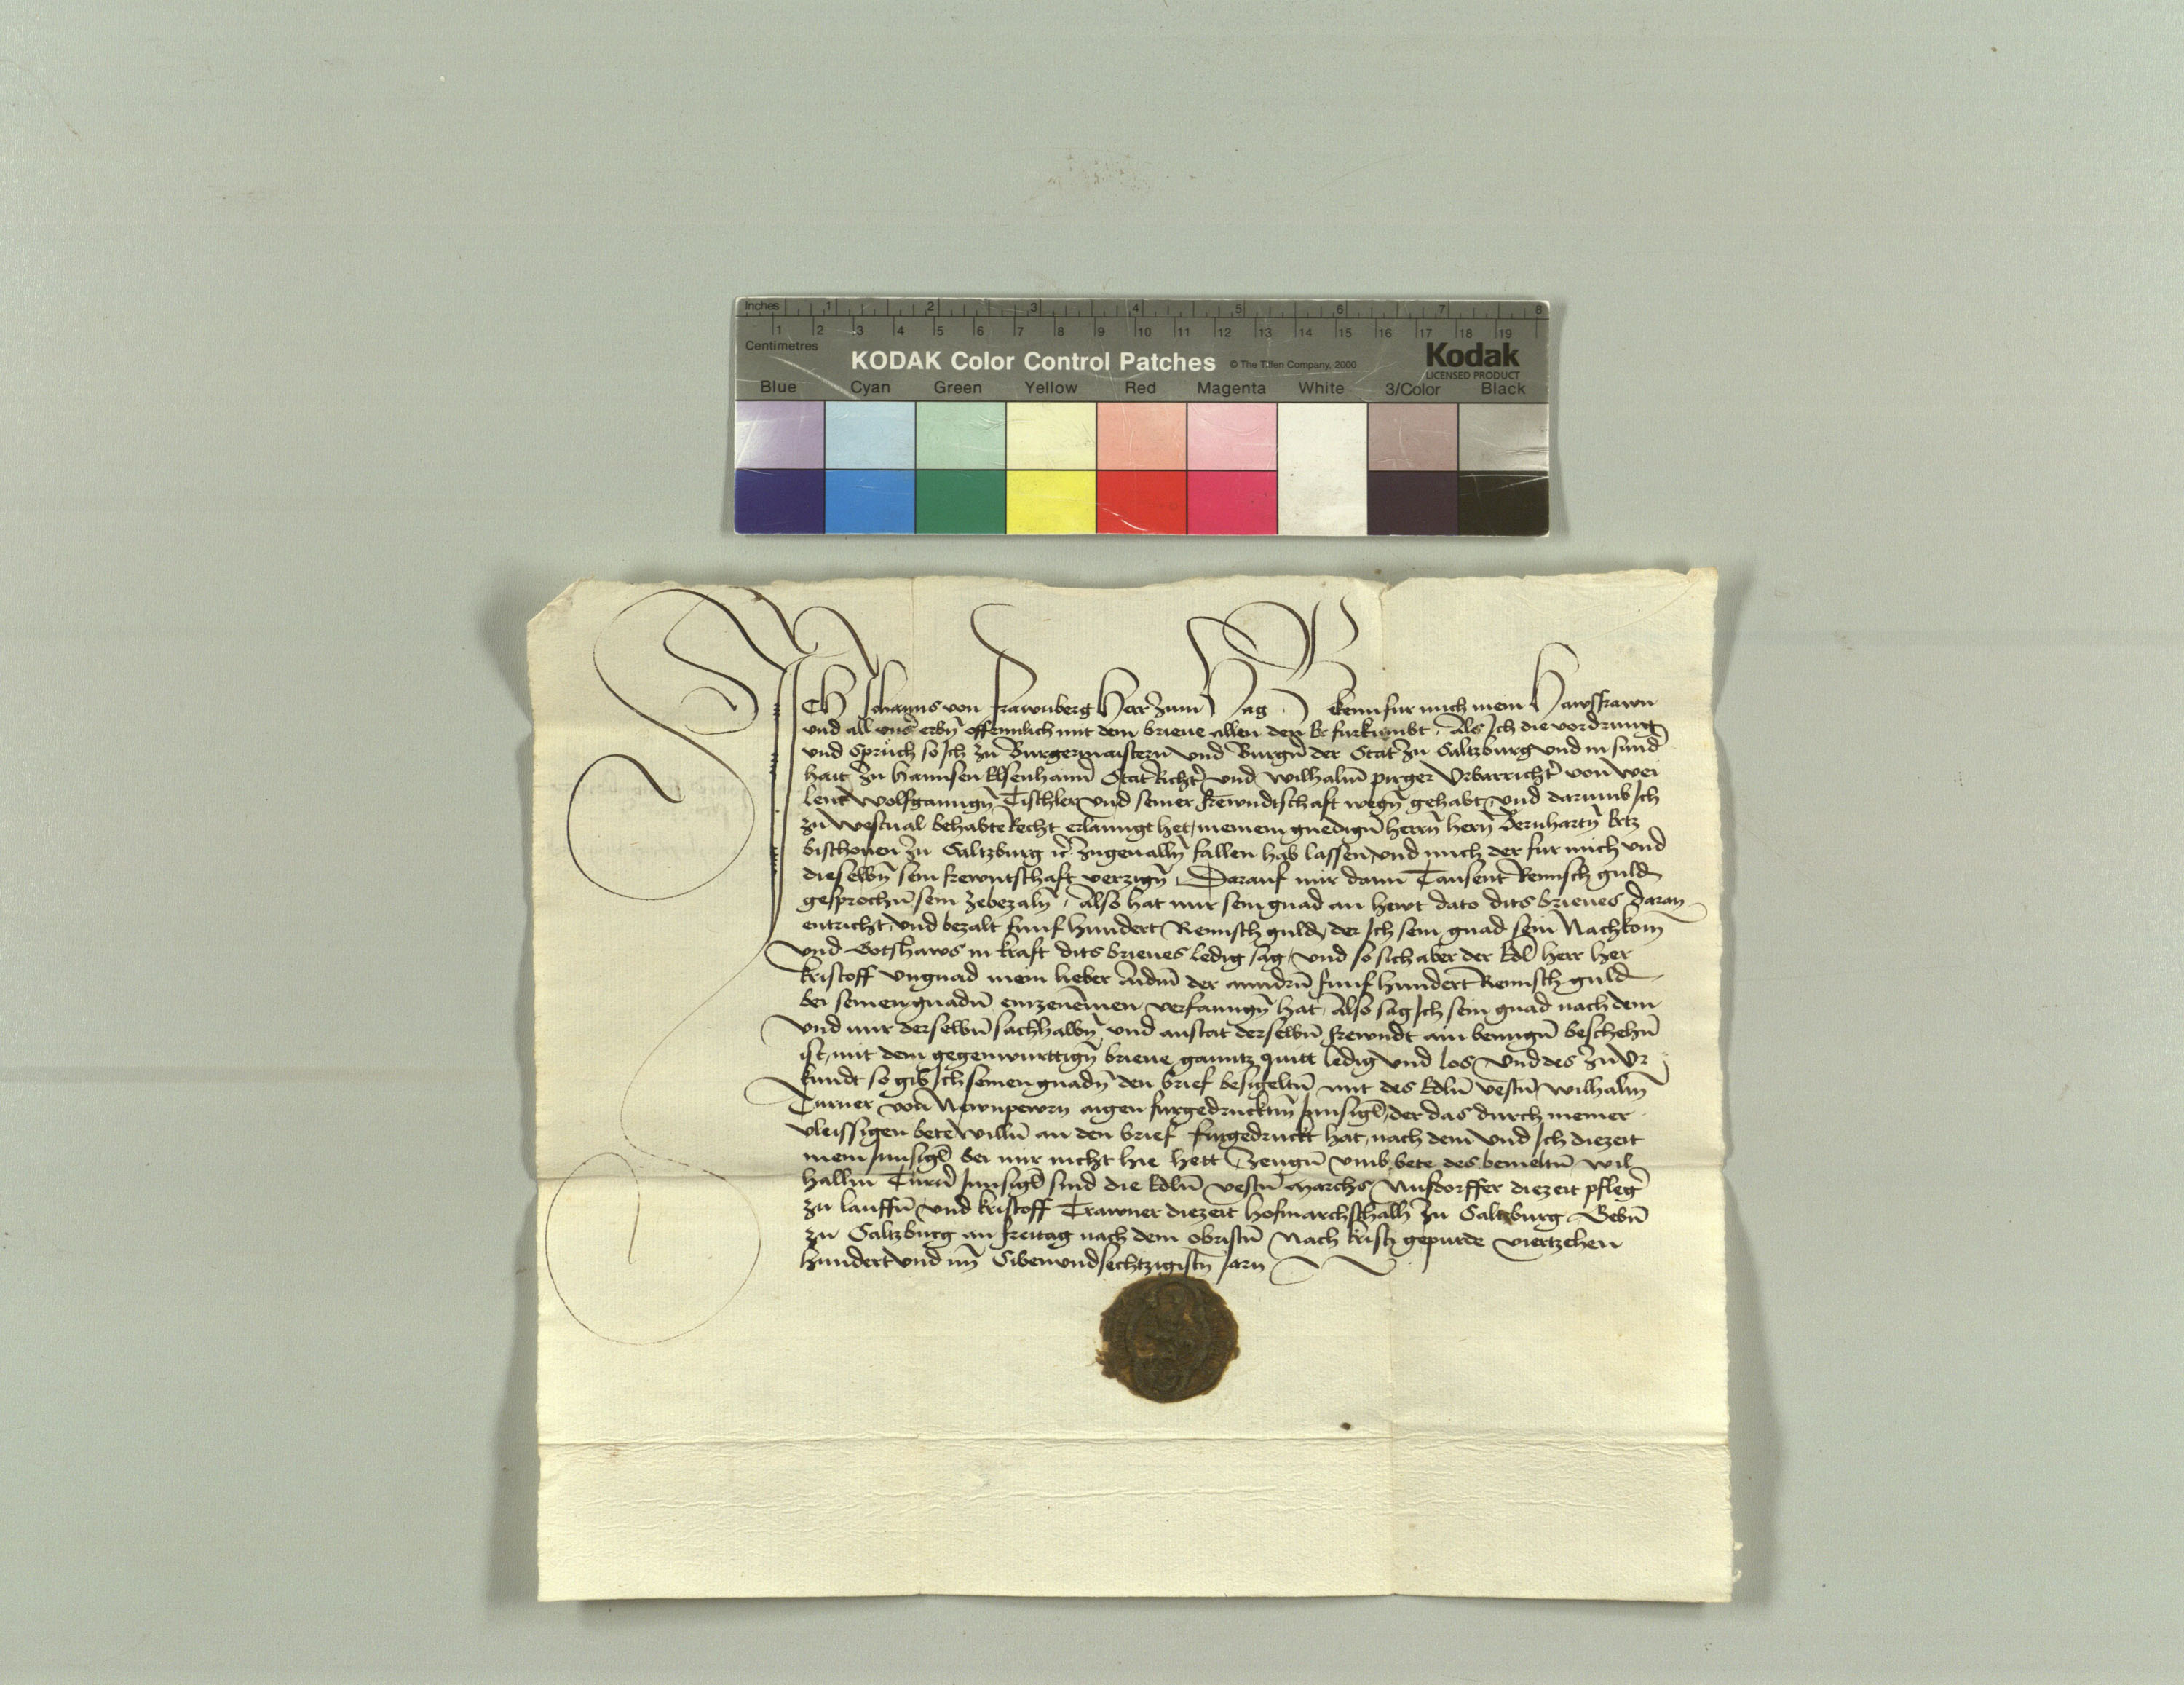 Inches 1 2 3 4 5 6 7 8
1 2 3 4 5 6 7 8 9 10 11 12 13 14 15 16 17 18 19
Centimetres
KODAK Color Control Patches © The Tiffen Company, 2000 Kodak
LICENSED PRODUCT
Blue Cyan Green Yellow Red Magenta White 3/Color Black
ICH Johanns von Frawnberg Herr zum Hag Bekenn fur mich mein Hawsfrawn
und all unser erbn offennlich mit dem brieue allen den Er furkumbt, Als Ich die vordrung
und Spruch so Ich zu Burgermaistern und Burgern der Stat zu Saltzburg und in sund
hait zu Hannsen Elsenhaimer Statrichter und Wilhalm pirger Urbarrichter von wei
lent Wolfganngn Tischler und seiner frewndtschaft wegn gehabt, und darumb Ich
zu Westual behabte Recht erlanngt het, meinem gnedign herrn hern Bernhartn Ertz
bischouen zu Saltzburg etc zugeualln fallen hab lassen, und mich der fur mich und
dieselbn sein frewntschaft verzign, Darauf mir dann Tausent Reinisch guld
gesprochn sein zebezaln, Also hat mir sein gnad an hewt dato dits brieues daran
entricht, und bezalt funf hundert Reinisch guld, der Ich sein gnad sein Nachkom
und Gotshaws in kraft dits brieues ledig sag, und so sich aber der Edl herr her
Kristoff Ungnad mein lieber der anndrn funf hundert Reinisch guld
bei seinen gnadn einzenemen verfanngn hat, Also sag Ich sein gnad nach dem
und mir derselbn sachhalbn, und anstat derselbn frewndt ain benugn beschehn
ist, mit dem gegenwurttign brieue, ganntz quitt ledig und los, und des zu ur
kundt so gib Ich seinen gnadn den brief besigeltn mit des Edln vestn Wilhalm
Turner von Newnpewrn aigen furgedrucktm Innsigl, der das durch meiner
vleissigen bete willn an den brief furgedruckt hat, nach dem und Ich diezeit
mein Innsigl bei mir nicht hie hett Zeugn umb bete des bemeltn Wil
halm Turner Innsigl sind die Edln vestn Marchs Nusdorffer diezeit pfleger
zu lauffn, und Kristoff Trawner diezeit Hofmarschalh zu Saltzburg, Gebn
zu Saltzburg an freitag nach dem obristn Nach kristj gepurde viertzehen
hundert und im Sibenundsechtzigistn Jarn